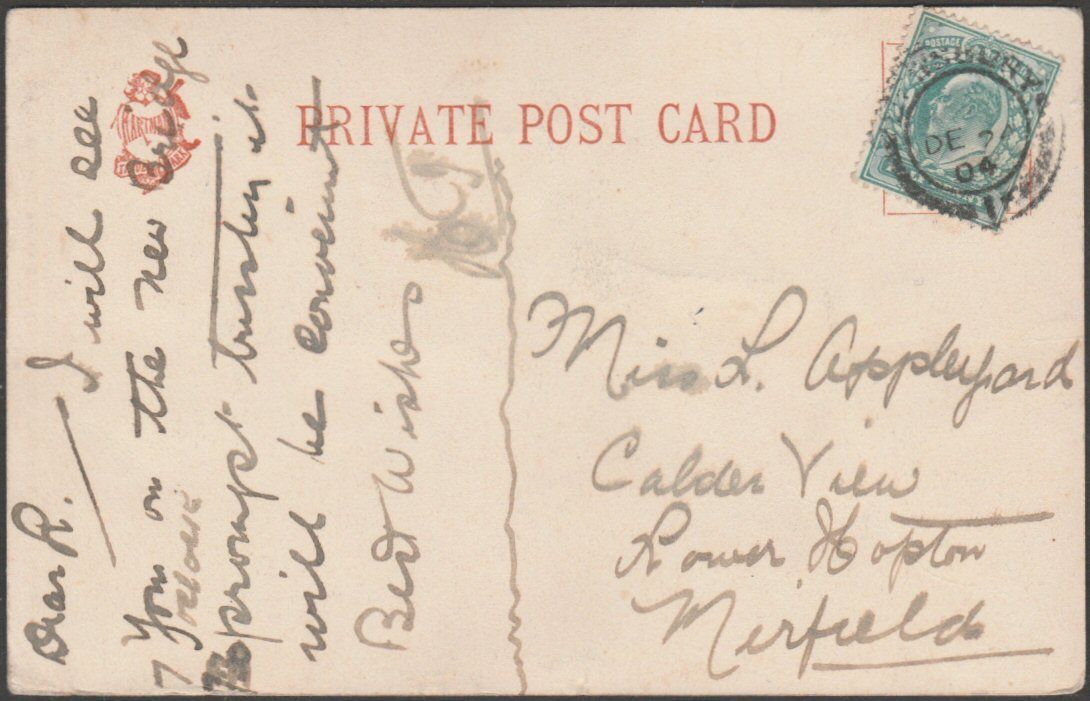 PRIVATE POST CARD
HARTMANN
TRADE MARK
POSTAGE
DE 2
04
Dear R.
I will see
You on the new bridge
7 oclock
prompt trusting it
will be convenient
Best Wishes
Miss L. Appleyard
Calder View
Lower Hopton
Mirfield